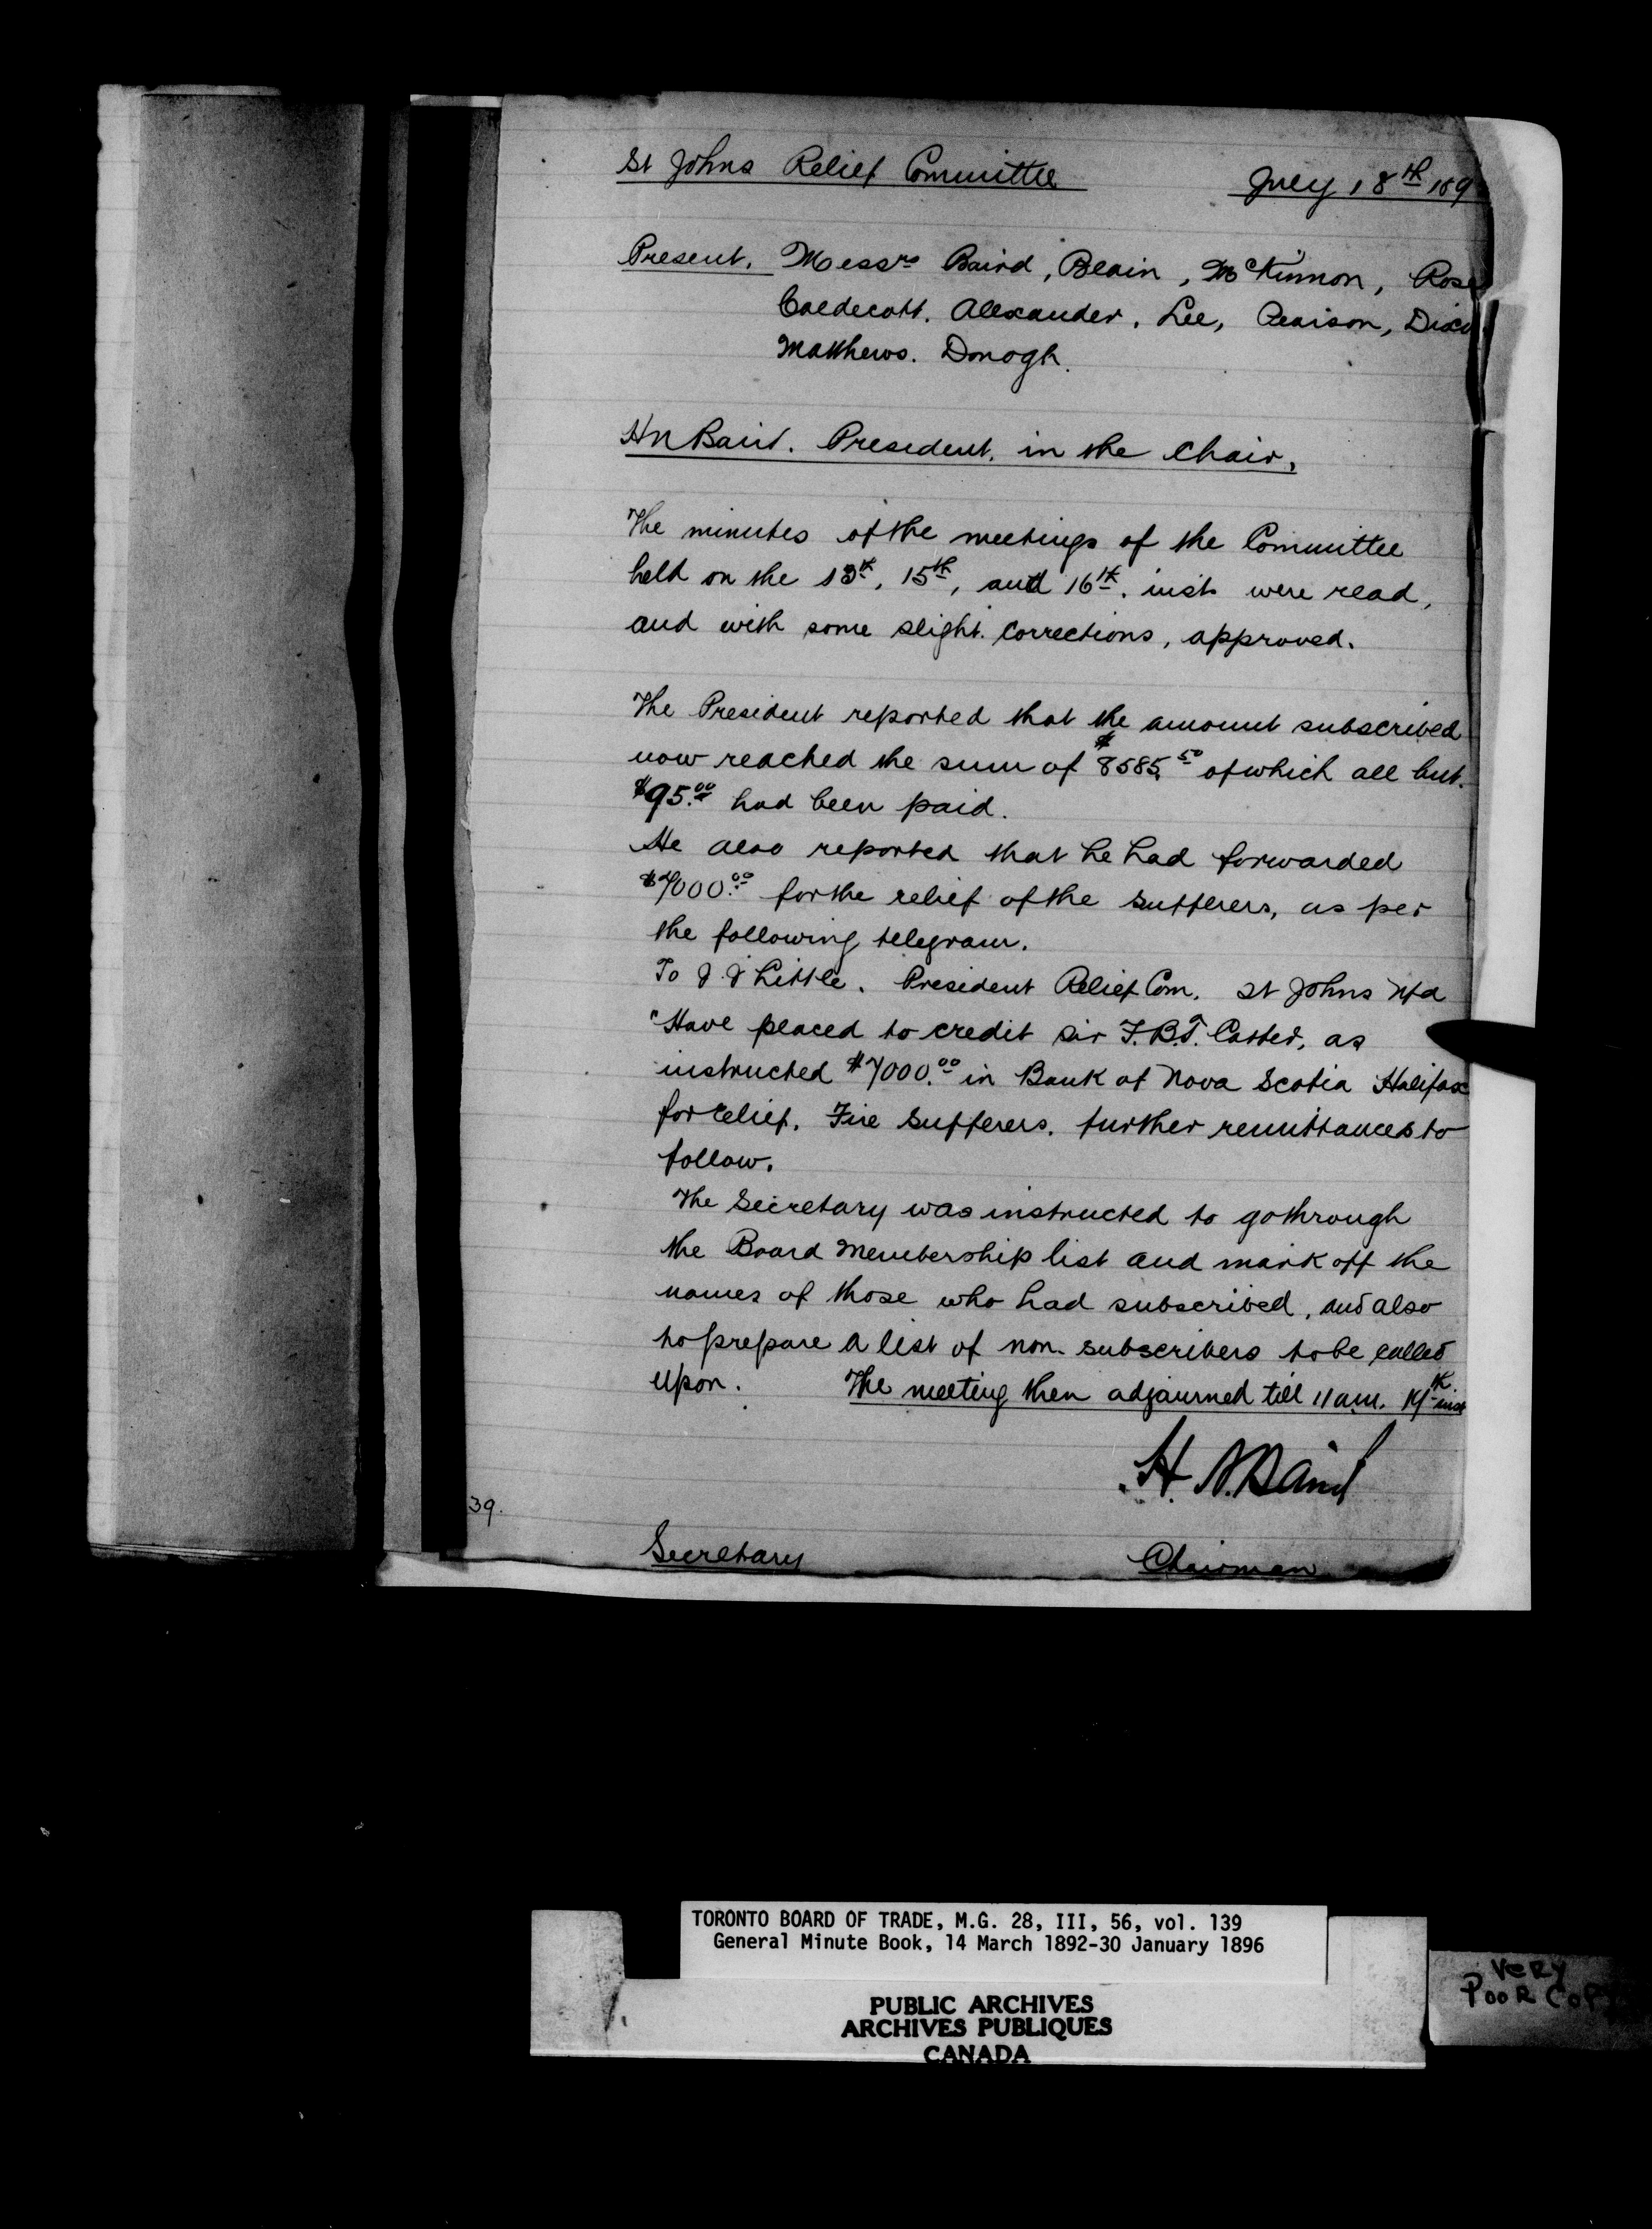 St Johns Relief Committee July 18th 189
Present. Messrs Baird, Blain, McKinnon, Rose
Caldecott. Alexander. Lee, Pearson, Dixon
Matthews. Donogh.
H N Baird. President. in the Chair.
The minutes of the meetings of the Committee
held on the 13th, 15th, and 16th. inst were read,
and with some slight. corrections, approved.
The President reported that the amount subscribed
now reached the sum of $8585.50 of which all but.
$95.00 had been paid.
He also reported that he had forwarded
$7000.00 for the relief of the sufferers, as per
the following telegram.
To J. J Little. President Relief Com. St Johns Nfd
"Have placed to credit Sir F.B.T. Carter, as
instructed $7000.00 in Bank of Nova Scotia Halifax
for relief. Fire Sufferers. further remittances to
follow.
The Secretary was instructed to go through
the Board Membership list and mark off the
names of those who had subscribed, and also
to prepare a list of non. subscribers to be called
upon. The meeting then adjourned till 11 am. inst
H. N. Baird
39.
Secretary Chairman
TORONTO BOARD OF TRADE, M.G. 28, III, 56, vol. 139
General Minute Book, 14 March 1892-30 January 1896
PUBLIC ARCHIVES
ARCHIVES PUBLIQUES
CANADA
VERY
POOR COPY